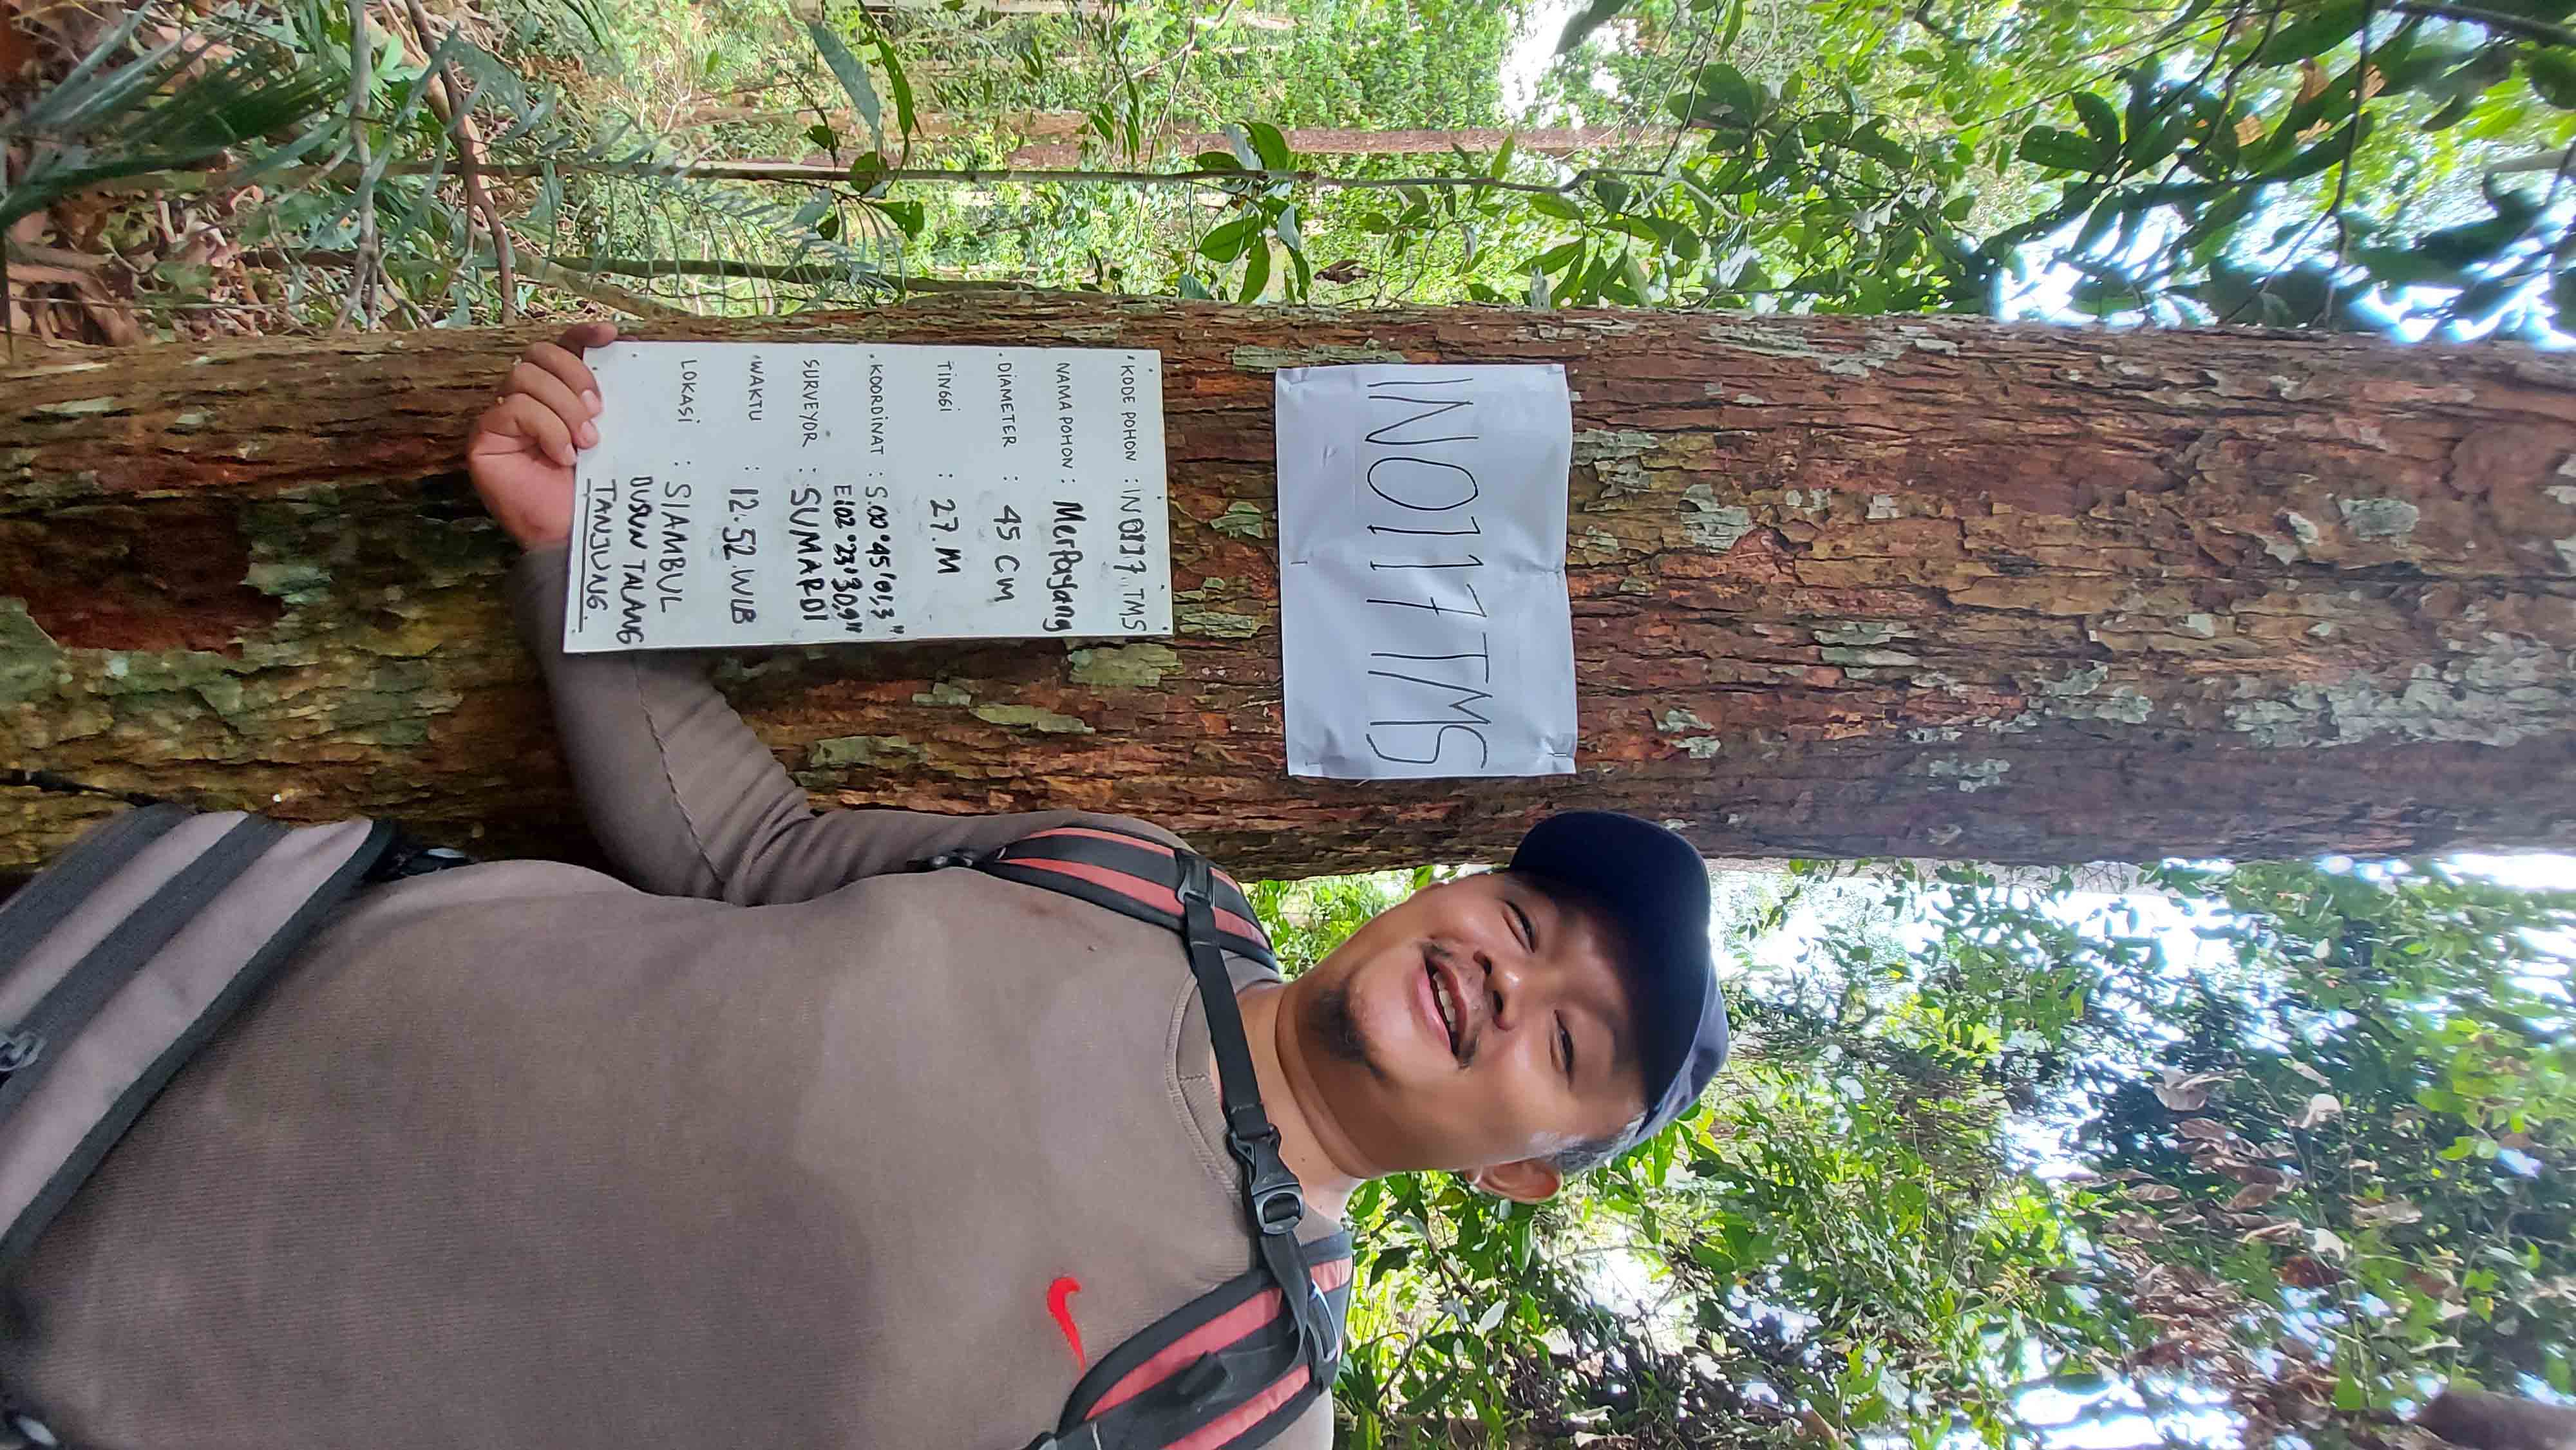 IN0117TMS
KODE POHON : IN0117. TMS
NAMA POHON : Merpayang
DIAMETER : 45 CM
TINGGI : 27.M
KOORDINAT : S.00°45'01,3"
E102°23'30,9"
SURVEYOR : SUMARDI
WAKTU : 12.52.WIB
LOKASI : SIAMBUL
DUSUN TALANG
TANJUNG.